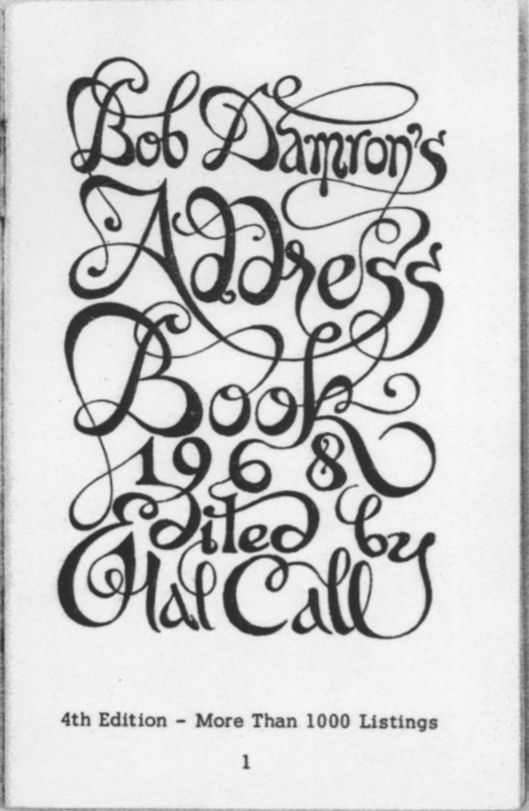 Bob Damron's
Address
Book
1968
Edited by
Hal Call
4th Edition - More Than 1000 Listings
1